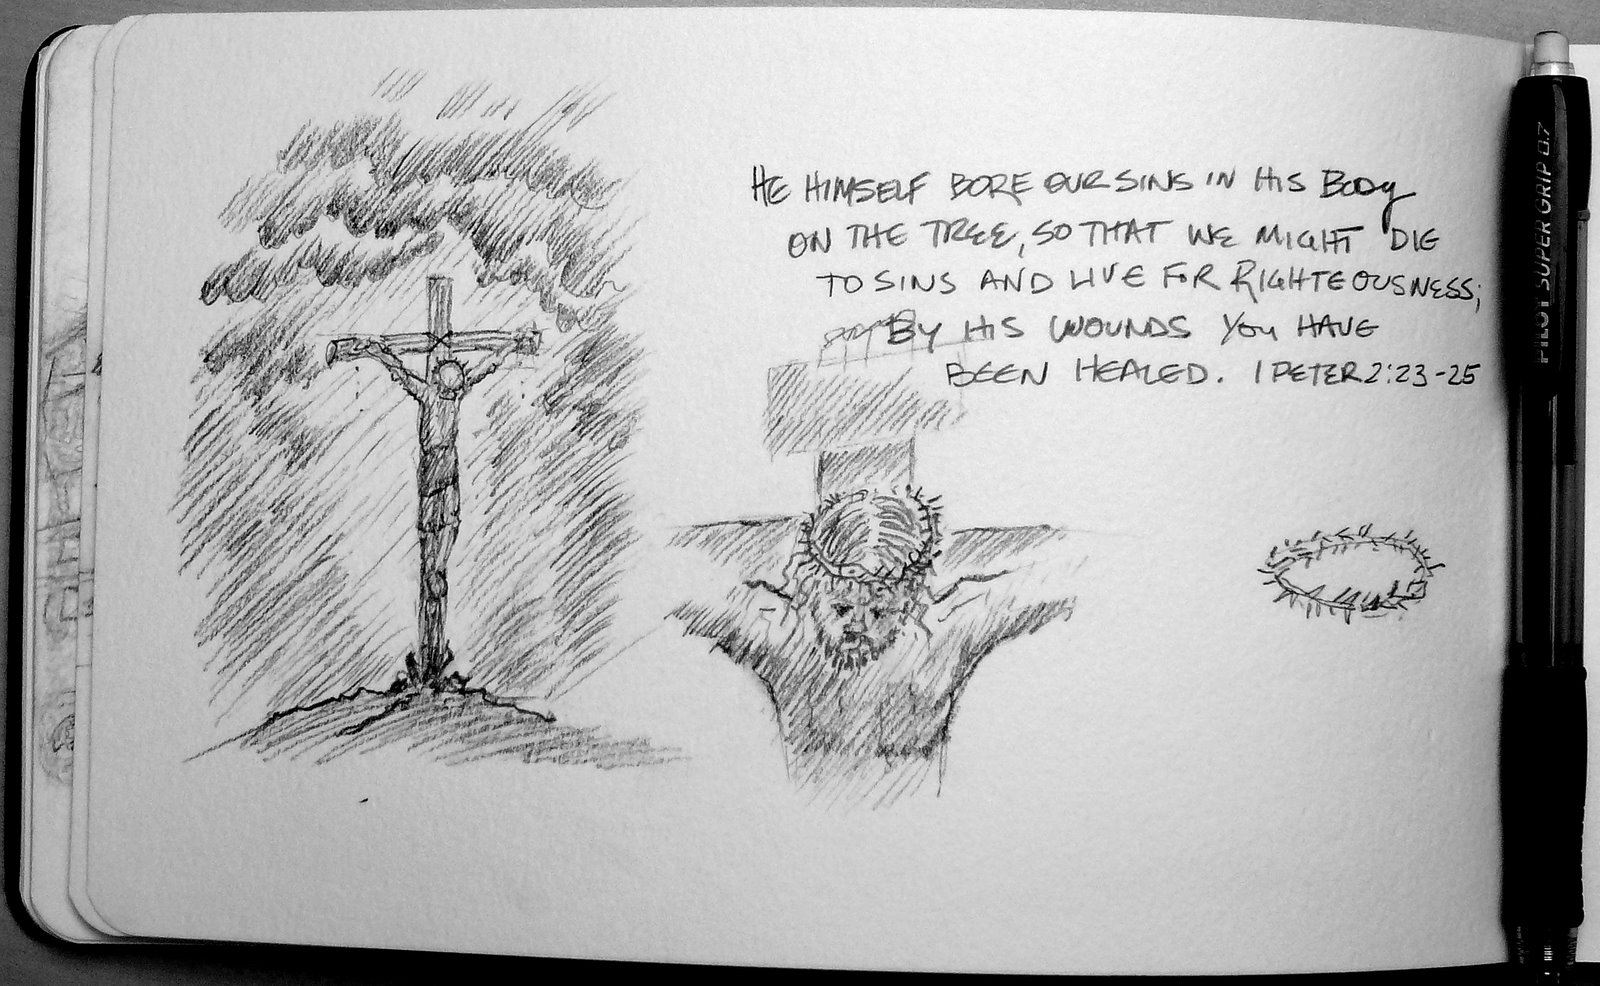 HE HIMSELF BORE OUR SINS IN HIS BODY
ON THE TREE, SO THAT WE MIGHT DIE
TO SINS AND LIVE FOR RIGHTEOUSNESS;
BY HIS WOUNDS YOU HAVE
BEEN HEALED. 1 PETER 2:23-25
PILOT SUPER GRIP 0.7